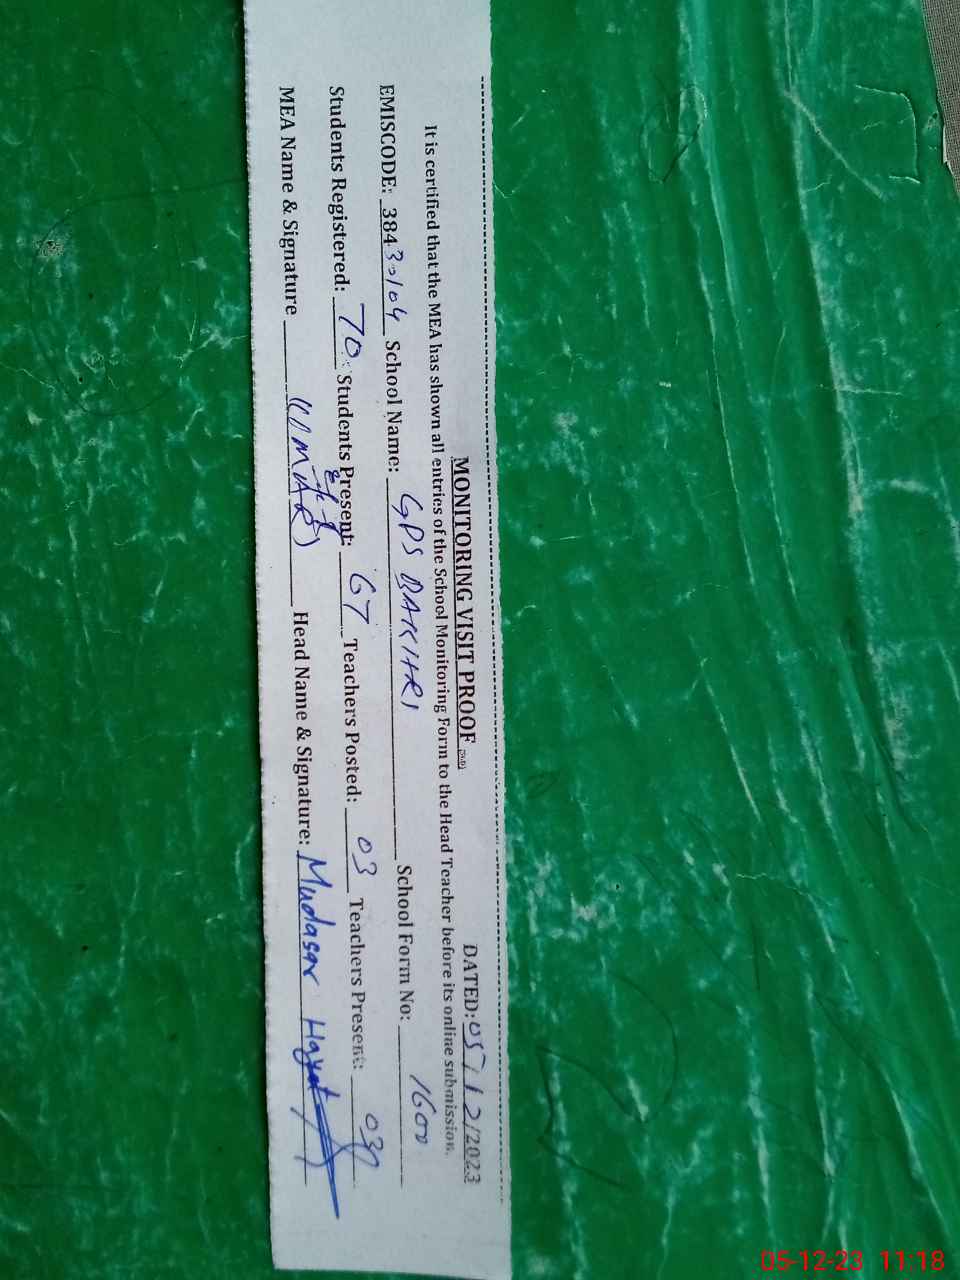 MONITORING VISIT PROOF
DATED: 05/12/2023
It is certified that the MEA has shown all entries of the School Monitoring Form to the Head Teacher before its online submission.
EMISCODE: 38430104 School Name: GPS BAKHRI School Form No: 1600
Students Registered: 70 Students Present: 67 Teachers Posted: 03 Teachers Present: 03
MEA Name & Signature UMAR Head Name & Signature: Mudasar Hayat
05-12-23 11:18